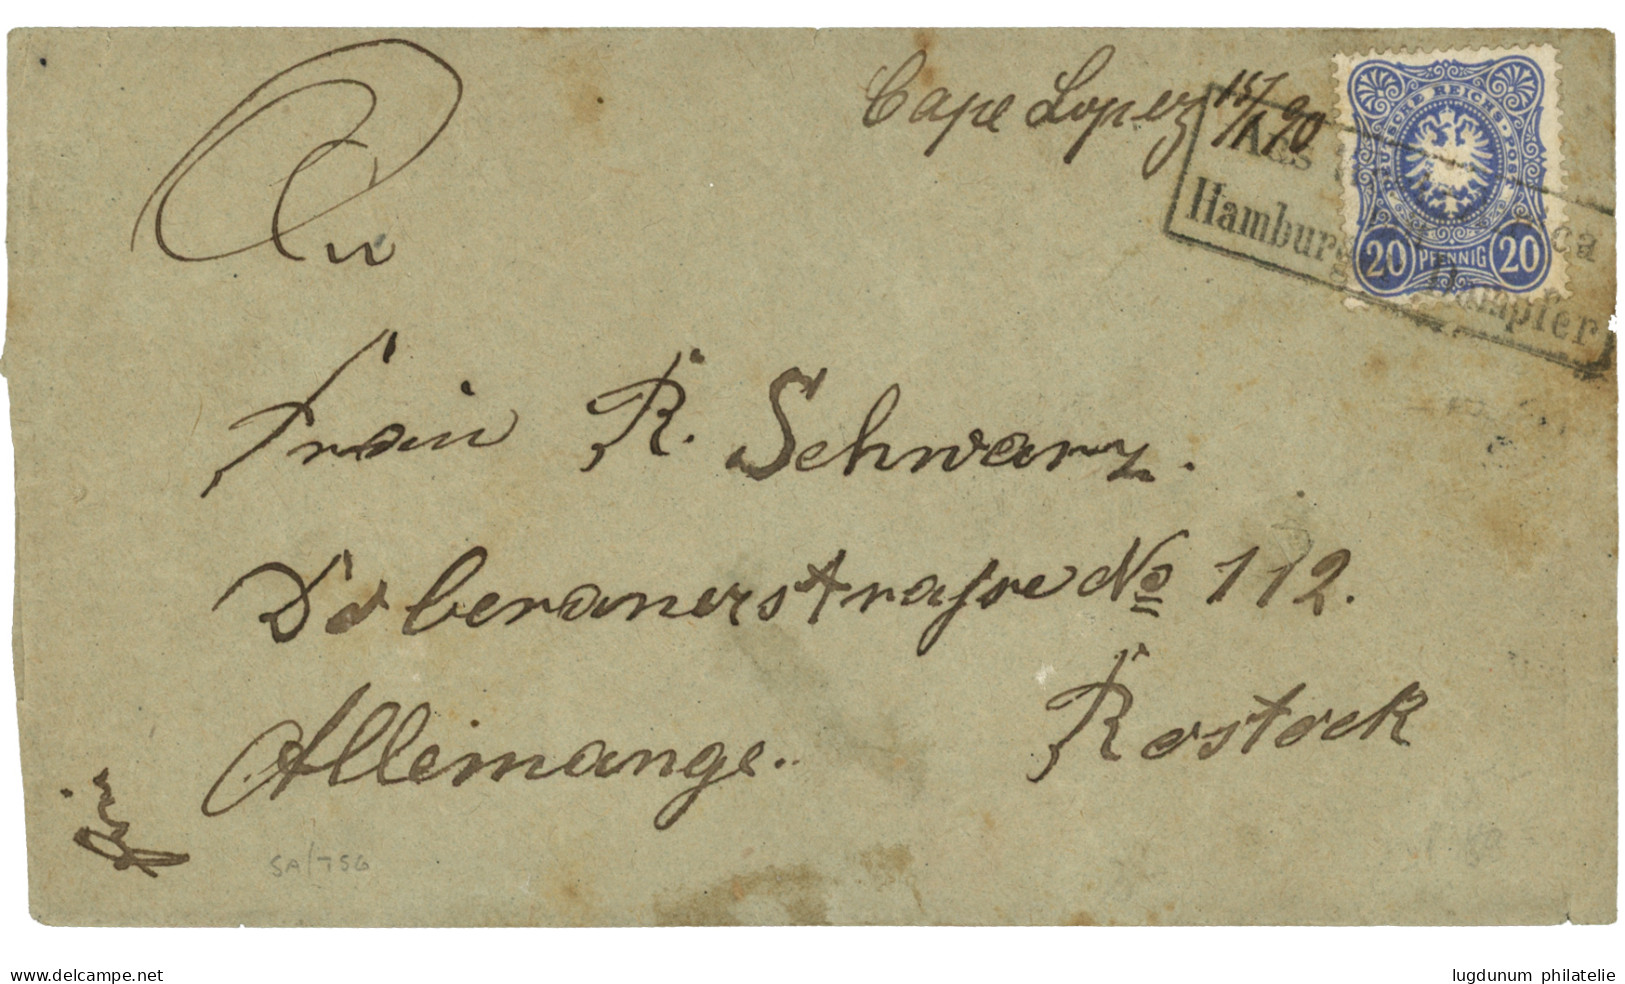 Cape Lopez 15/1 90
Aus
Hamburg Dampfer
DEUTSCHE REICHS-POST
20 PFENNIG 20
An
Frau R. Schwarz.
Doberanerstrasse No 112.
Allemange. Rostock
SA/TSG
www.delcampe.net
lugdunum philatelie